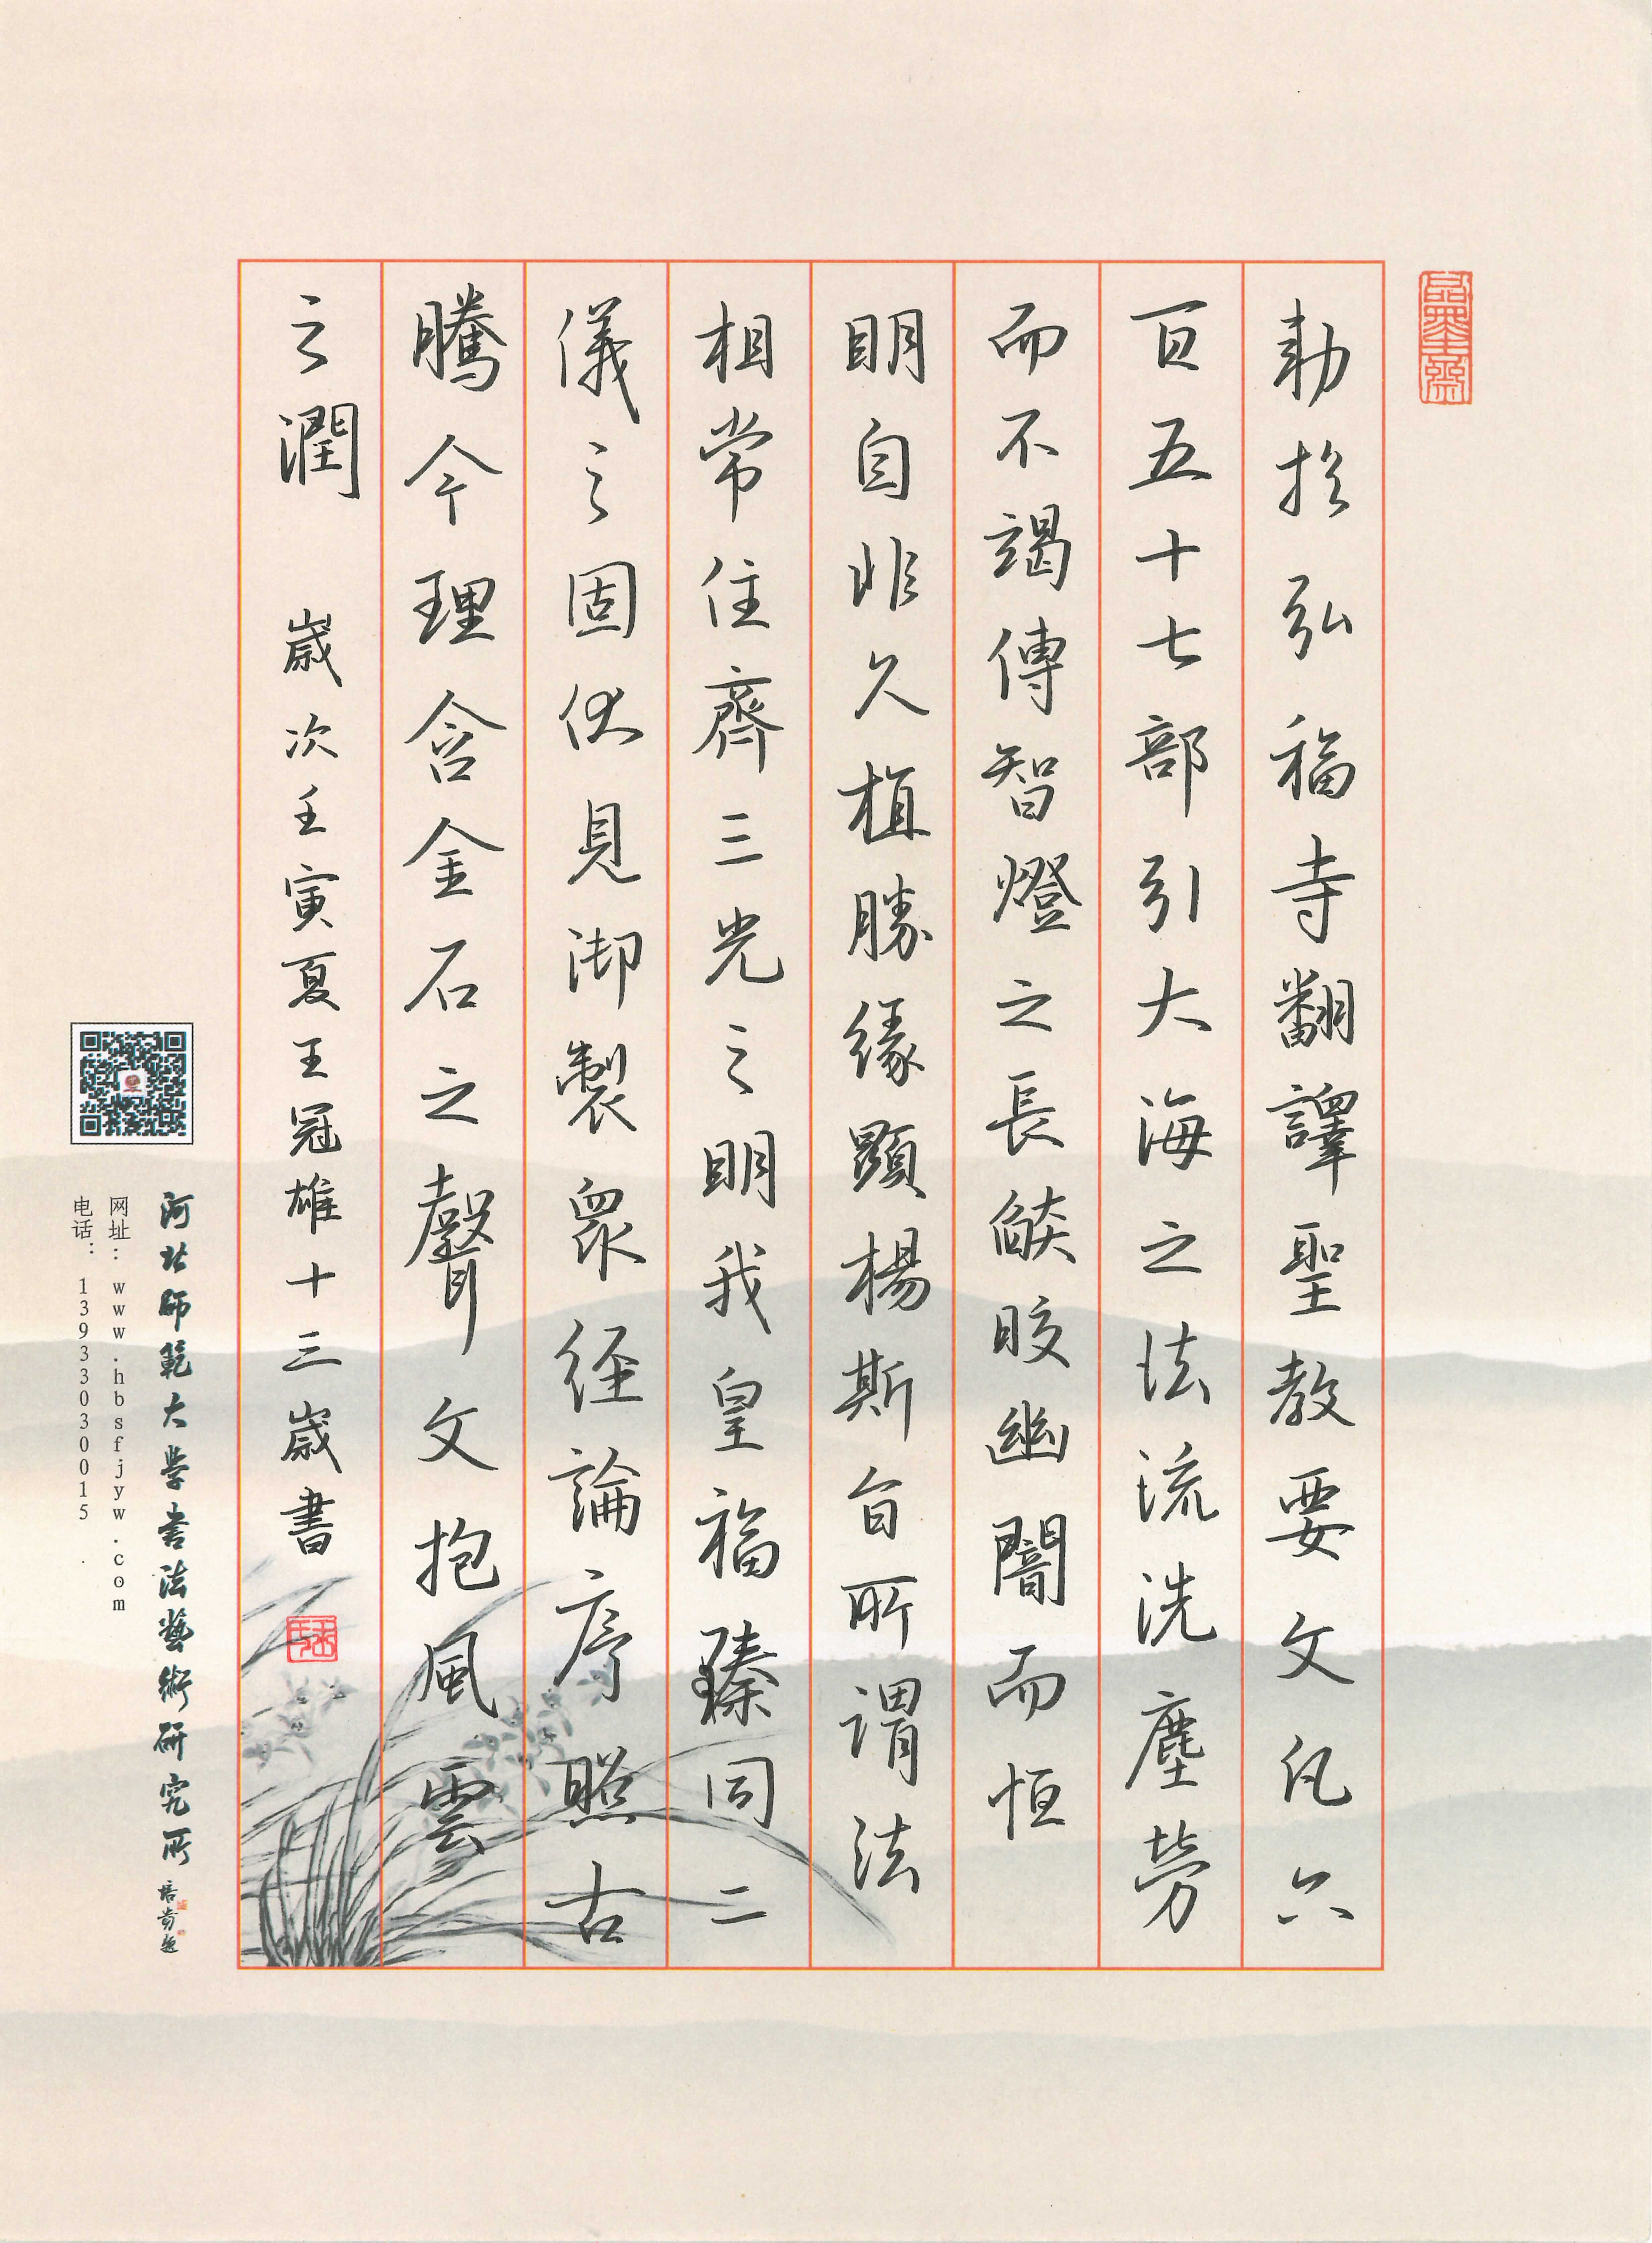 勅於弘福寺翻譯聖教要文凡六
百五十七部引大海之法流洗塵勞
而不竭傳智燈之長燄皎幽闇而恒
明自非久植勝緣顯楊斯旨所謂法
相常住齊三光之明我皇福臻同二
儀之固伏見御製眾經論序照古
騰今理含金石之聲文抱風雲
之潤 歲次壬寅夏王冠雄十三歲書
河北師範大学書法藝術研究所
网址：www.hbsfjyw.com
电话：13933030015